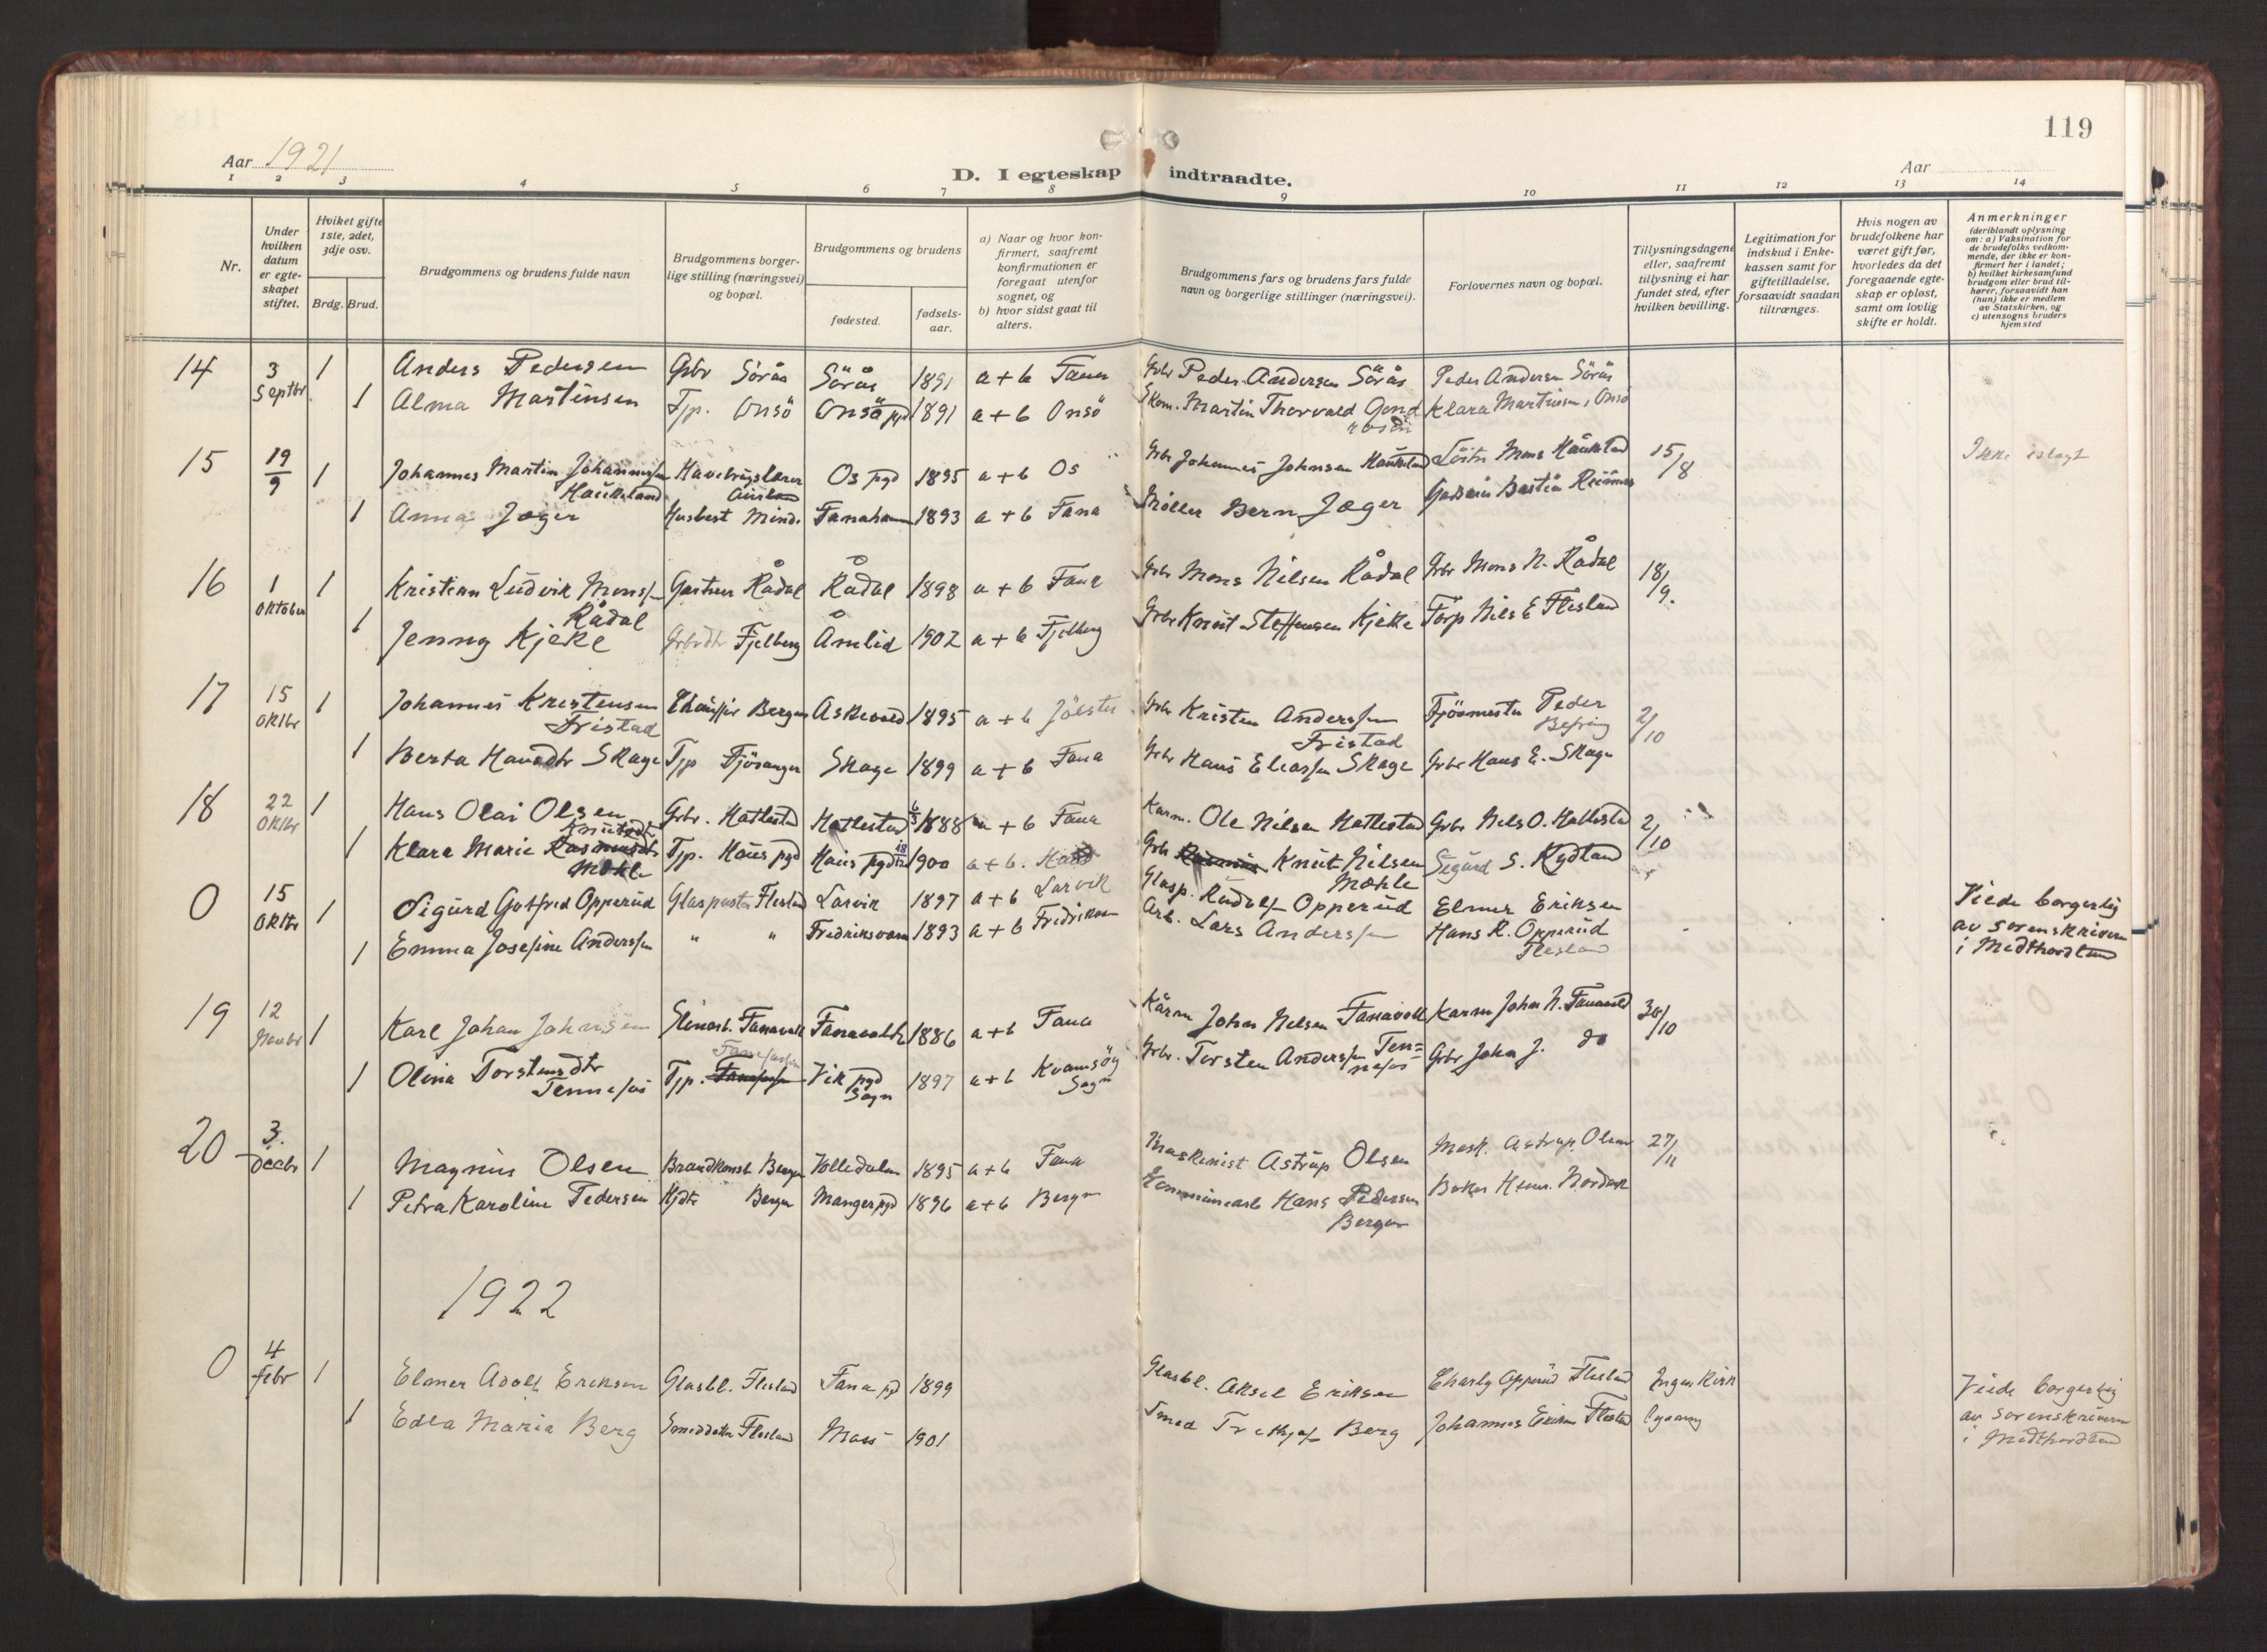 119
Aar 1921
D. I egteskap indtraadte.
Aar
1 2 3 4 5 6 7 8 9 10 11 12 13 14
Nr.
Under hvilken datum er egteskapet stiftet.
Hviket gifte 1ste, 2det, 3dje osv.
Brdg. Brud.
Brudgommens og brudens fulde navn
Brudgommens borgerlige stilling (næringsvei) og bopæl.
Brudgommens og brudens
fødested.
fødselsaar.
a) Naar og hvor konfirmert, saafremt konfirmationen er foregaat utenfor sognet, og
b) hvor sidst gaat til alters.
Brudgommens fars og brudens fars fulde navn og borgerlige stillinger (næringsvei).
Forlovernes navn og bopæl.
Tillysningsdagene eller, saafremt tillysning ei har fundet sted, efter hvilken bevilling.
Legitimation for indskud i Enkekassen samt for giftetilladelse, forsaavidt saadan tiltrænges.
Hvis nogen av brudefolkene har været gift før, hvorledes da det foregaaende egteskap er opløst, samt om lovlig skifte er holdt.
Anmerkninger
(deriblandt oplysning om: a) Vaksination for de brudefolks vedkommende, der ikke er konfirmert her i landet; b) hvilket kirkesamfund brudgom eller brud tilhører, forsaavidt han (hun) ikke er medlem av Statskirken, og c) utensogns bruders hjemsted
14 3 Septbr 1 Anders Pedersen Gbr Sörås Sörås 1891 a + b Fana Gbr Peder Andersen Sörås Peder Andersen Sörås
1 Alma Martinsen Tjp. Onsö Onsö pgd 1891 a + b Onsö Martin Thorvald Klara Martinsen, Onsö
15 19/9 1 Johannes Martin Johannessen Haukeland Os pgd 1895 a + b Os Gbr Johannes Johnsen Haukeland Mons Haukeland 15/8
1 Anna Jæger Husbest Minde Fanahamm 1893 a + b Fana Møller Bern Jæger Bastin
16 1 Oktober 1 Kristian Ludvik Monssen Rådal Gartner Rådal Rådal 1898 a + b Fana Gbr Mons Nilsen Rådal Gbr Mons N. Rådal 18/9.
1 Jenny Kjeke Gbrdtr Fjelberg Ånlid 1902 a + b Fjelberg Gbr Knut Steffensen Kjekke Forp Nils E Flesland
17 15 Oktbr 1 Johannes Kristensen Fristad Chauffør Bergen Askevold 1895 a + b Jölster Gbr Kristen Anderssen Fristad Fjösmester Peder Befring 2/10
1 Berta Hansdtr Skage Tjp Fjösanger Skage 1899 a + b Fana Gbr Hans Eliassen Skage Gbr Hans E. Skage
18 22 Oktbr 1 Hans Olai Olsen Gbr. Hatlestad Hatlestad 1888 a + b Fana Karm. Ole Nilsen Hatlestad Gbr Nils O. Hatlestad 2/10
1 Klara Marie Rasmusdtr Knutsdtr Mæhle Tjp. Haus pgd Haus pgd 1900 a + b. Haus Gbr Knut Nilsen Mæhle Sigurd S. Kydland
0 15 Oktbr 1 Sigurd Gotfred Opperud Glaspuster Flesland Larvik 1897 a + b Larvik Glasp. Rudolf Opperud Elmer Eriksen
1 Emma Josefine Anderssen " " Fredriksværn 1893 a + b Arb. Lars Anderssen Hans R. Opperud Flesland
Viede borgerlig av sorenskriveren i Midthordland
19 12 Novbr 1 Karl Johan Johnsen Fanavold Fanavold 1886 a + b Fana Kårm John Nilsen Fanavold Karm John N. Fanavold 30/10
1 Olina Torstensdtr Tennefos Tjp. Vik pgd Sogn 1897 a + b Kvamsøy Sogn Gbr. Torsten Anderssen Tennefos Gbr John J. do
20 3. Decbr 1 Magnus Olsen Brandkonst Bergen Hollidalen 1895 a + b Fana Maskinist Astrup Olsen Mask. Astrup Olsen 27/11
1 Petra Karoline Pedersen Hjdtr Bergen Manger pgd 1896 a + b Bergen Hans Pedersen Bergen
1922
0 4 Febr 1 Elmer Adolf Eriksen Glasbl. Flesland Fana pgd 1899 Glasbl. Aksel Eriksen Charly Opperud Flesland Ingen Kirk
1 Edla Maria Berg Smeddatter Flesland Moss 1901 Smed Berg Johannes Flesland lysning
Viede borgerlig av sorenskriveren i Midthordland